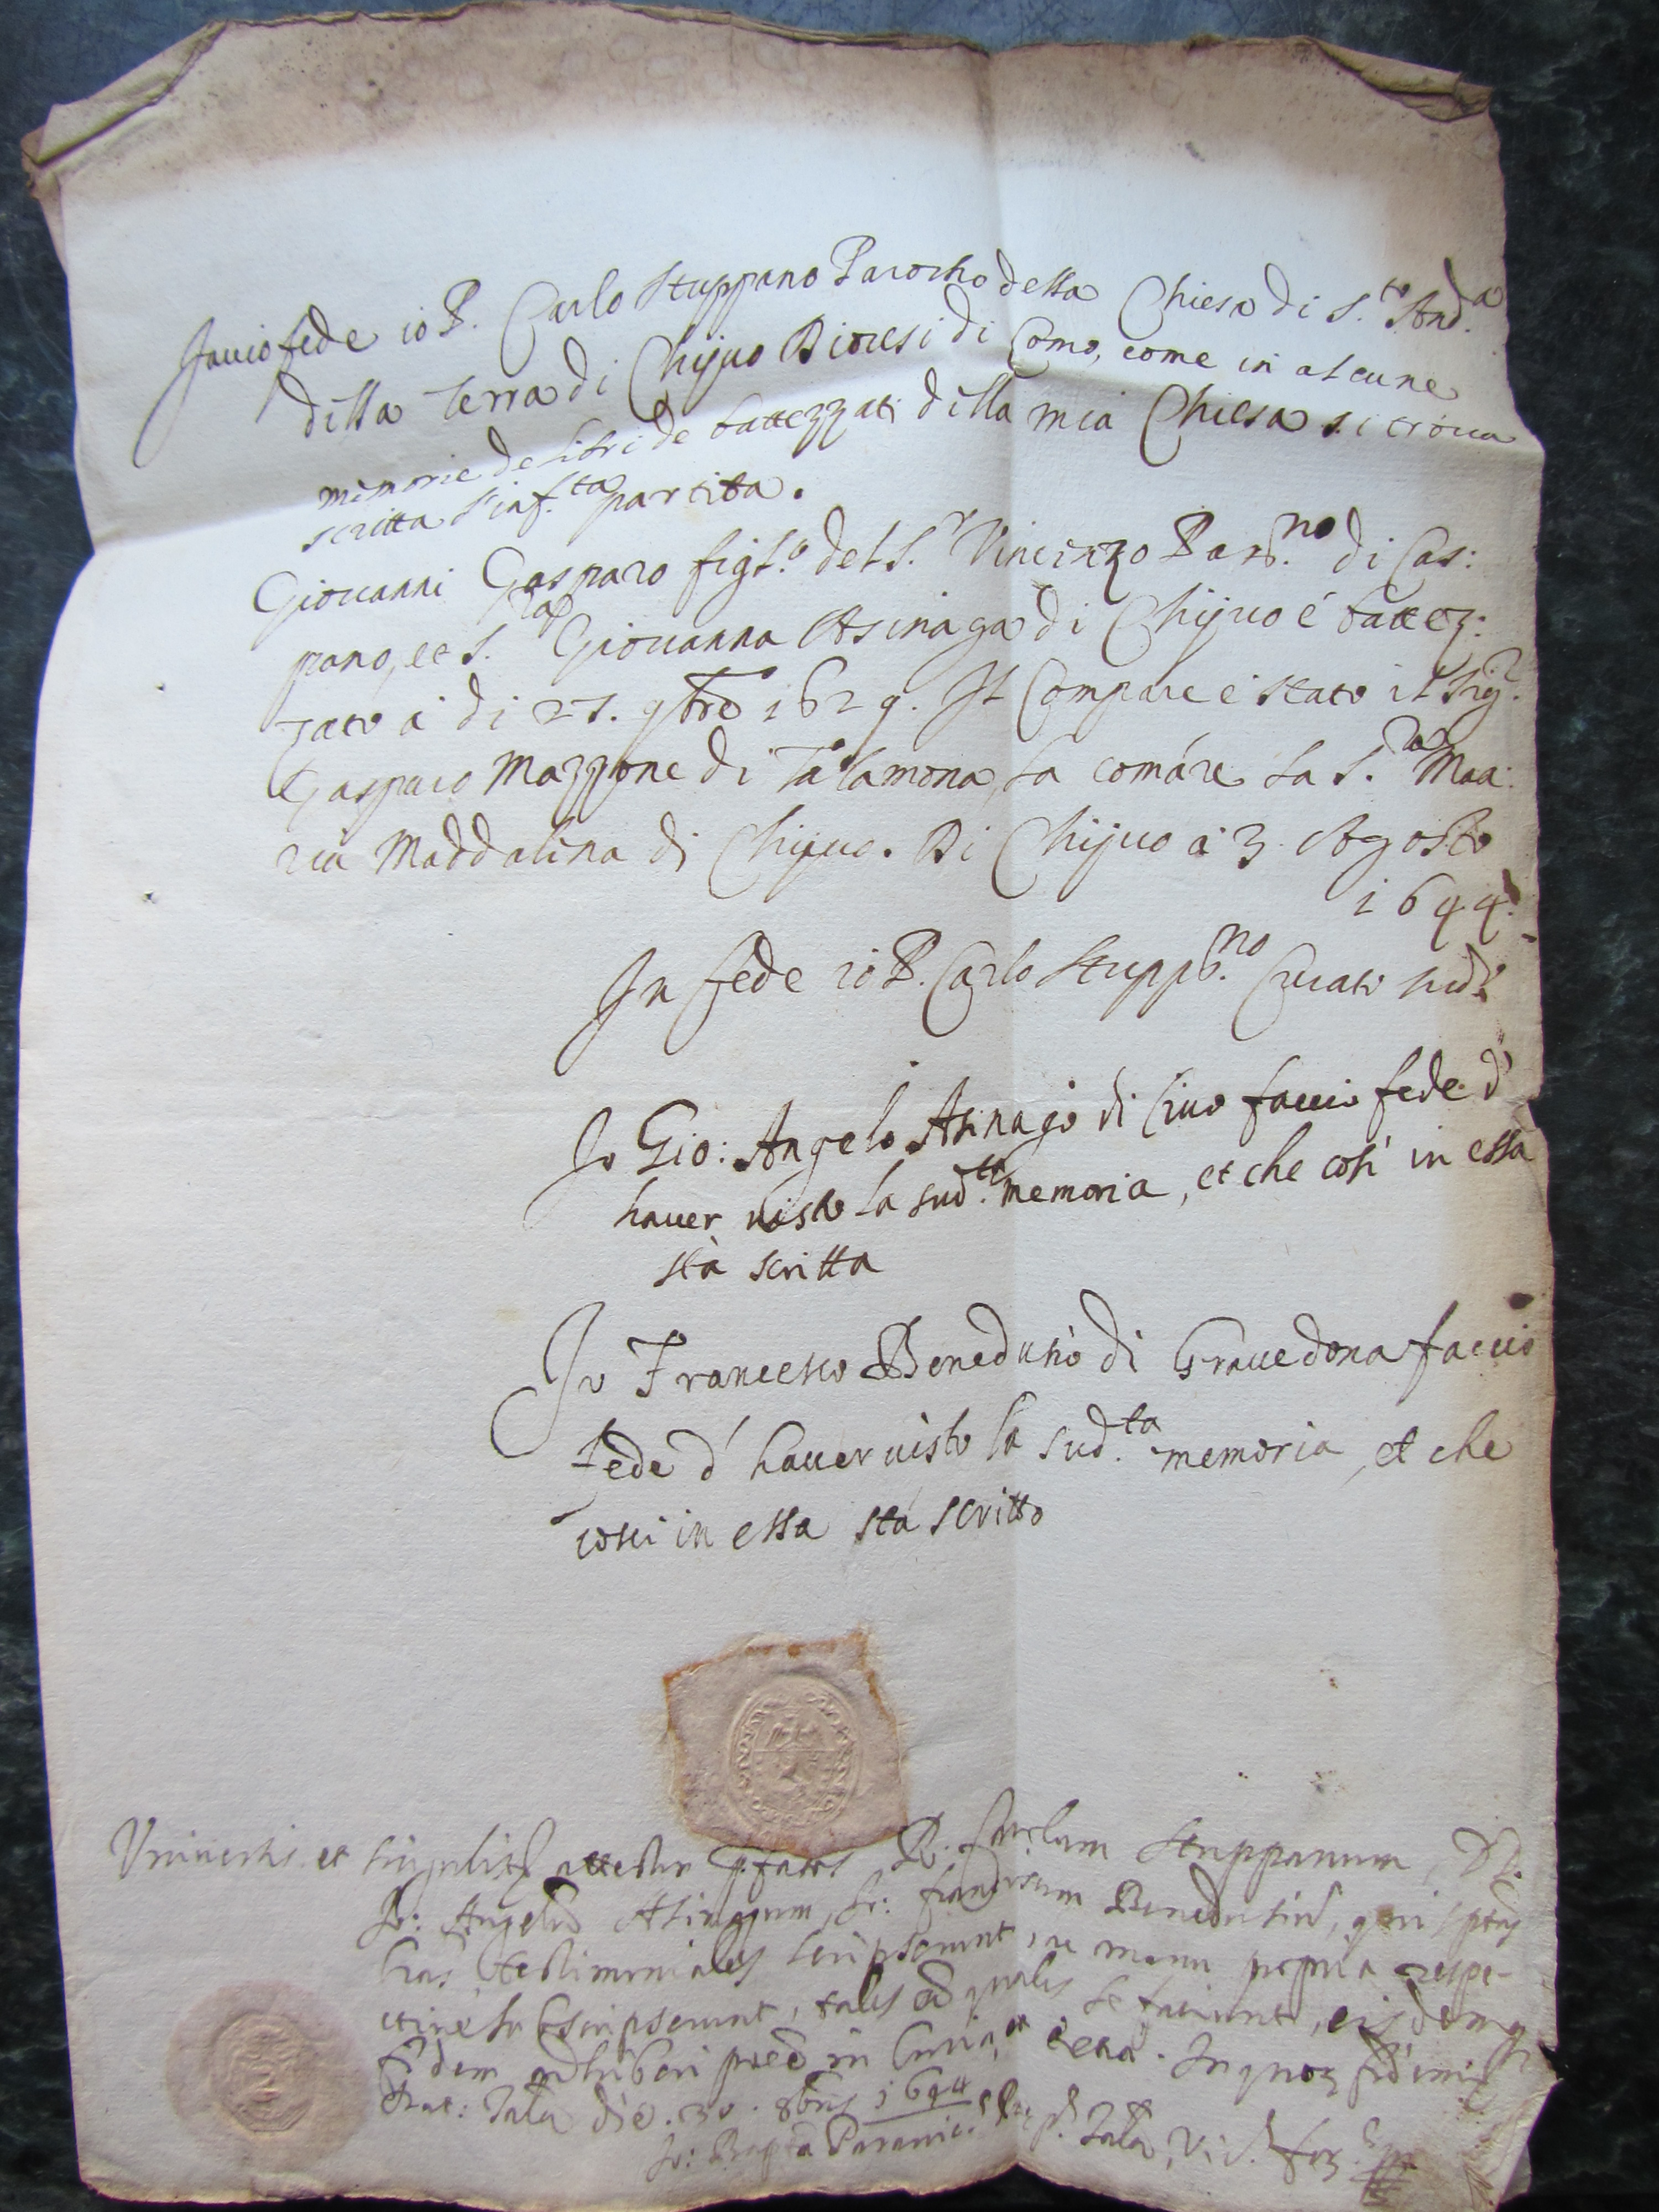 Faccio fede io P. Carlo Stuppano Parocho della Chiesa di S.to And.a
della terra di Chijuo Diocesi di Como, come in alcune
memorie de libri de battezzati della mia Chiesa si troua
scritta l'inf.ta partita.
Giouanni Gasparo figl.o del S.r Vincenzo Parr.no di Cas:
pano, et S.ra Giouanna Asinaga di Chijuo é battez:
zato á di 21. 9bre 1629. Il Compare é stato il Sig.r
Gasparo Mazzone di Talamona, la comáre la S.ra Maa:
ria Maddalina di Chijuo. Di Chijuo á 3. Agosto
1694.
In fede io P. Carlo Stupp.no Curato sud.o
Io Gio: Angelo Asinago di Ciuo faccio fede d'
hauer uisto la sud.ta memoria, et che cosi in essa
stà scritta
Io Francesco Benedusio di Grauedona faccio
fede d' hauer uisto la sud.ta memoria, et che
cosci in essa stá scritto
Vniuersis et singulis attestor R. Carlum Stuppanum,
Io: Angelũ Asinagum, Fr: Franciscum Benedusiũ, qui
has testimoniales scripserunt, ac manu propria respe-
ctiuè subscripserunt, tales et quales se faciunt, eisdemq
fidem adhiberi in Curia, et extra. In quor fidem
Dat: Tala die. 30. 8bris 1694
Io: Bapta Parauic.